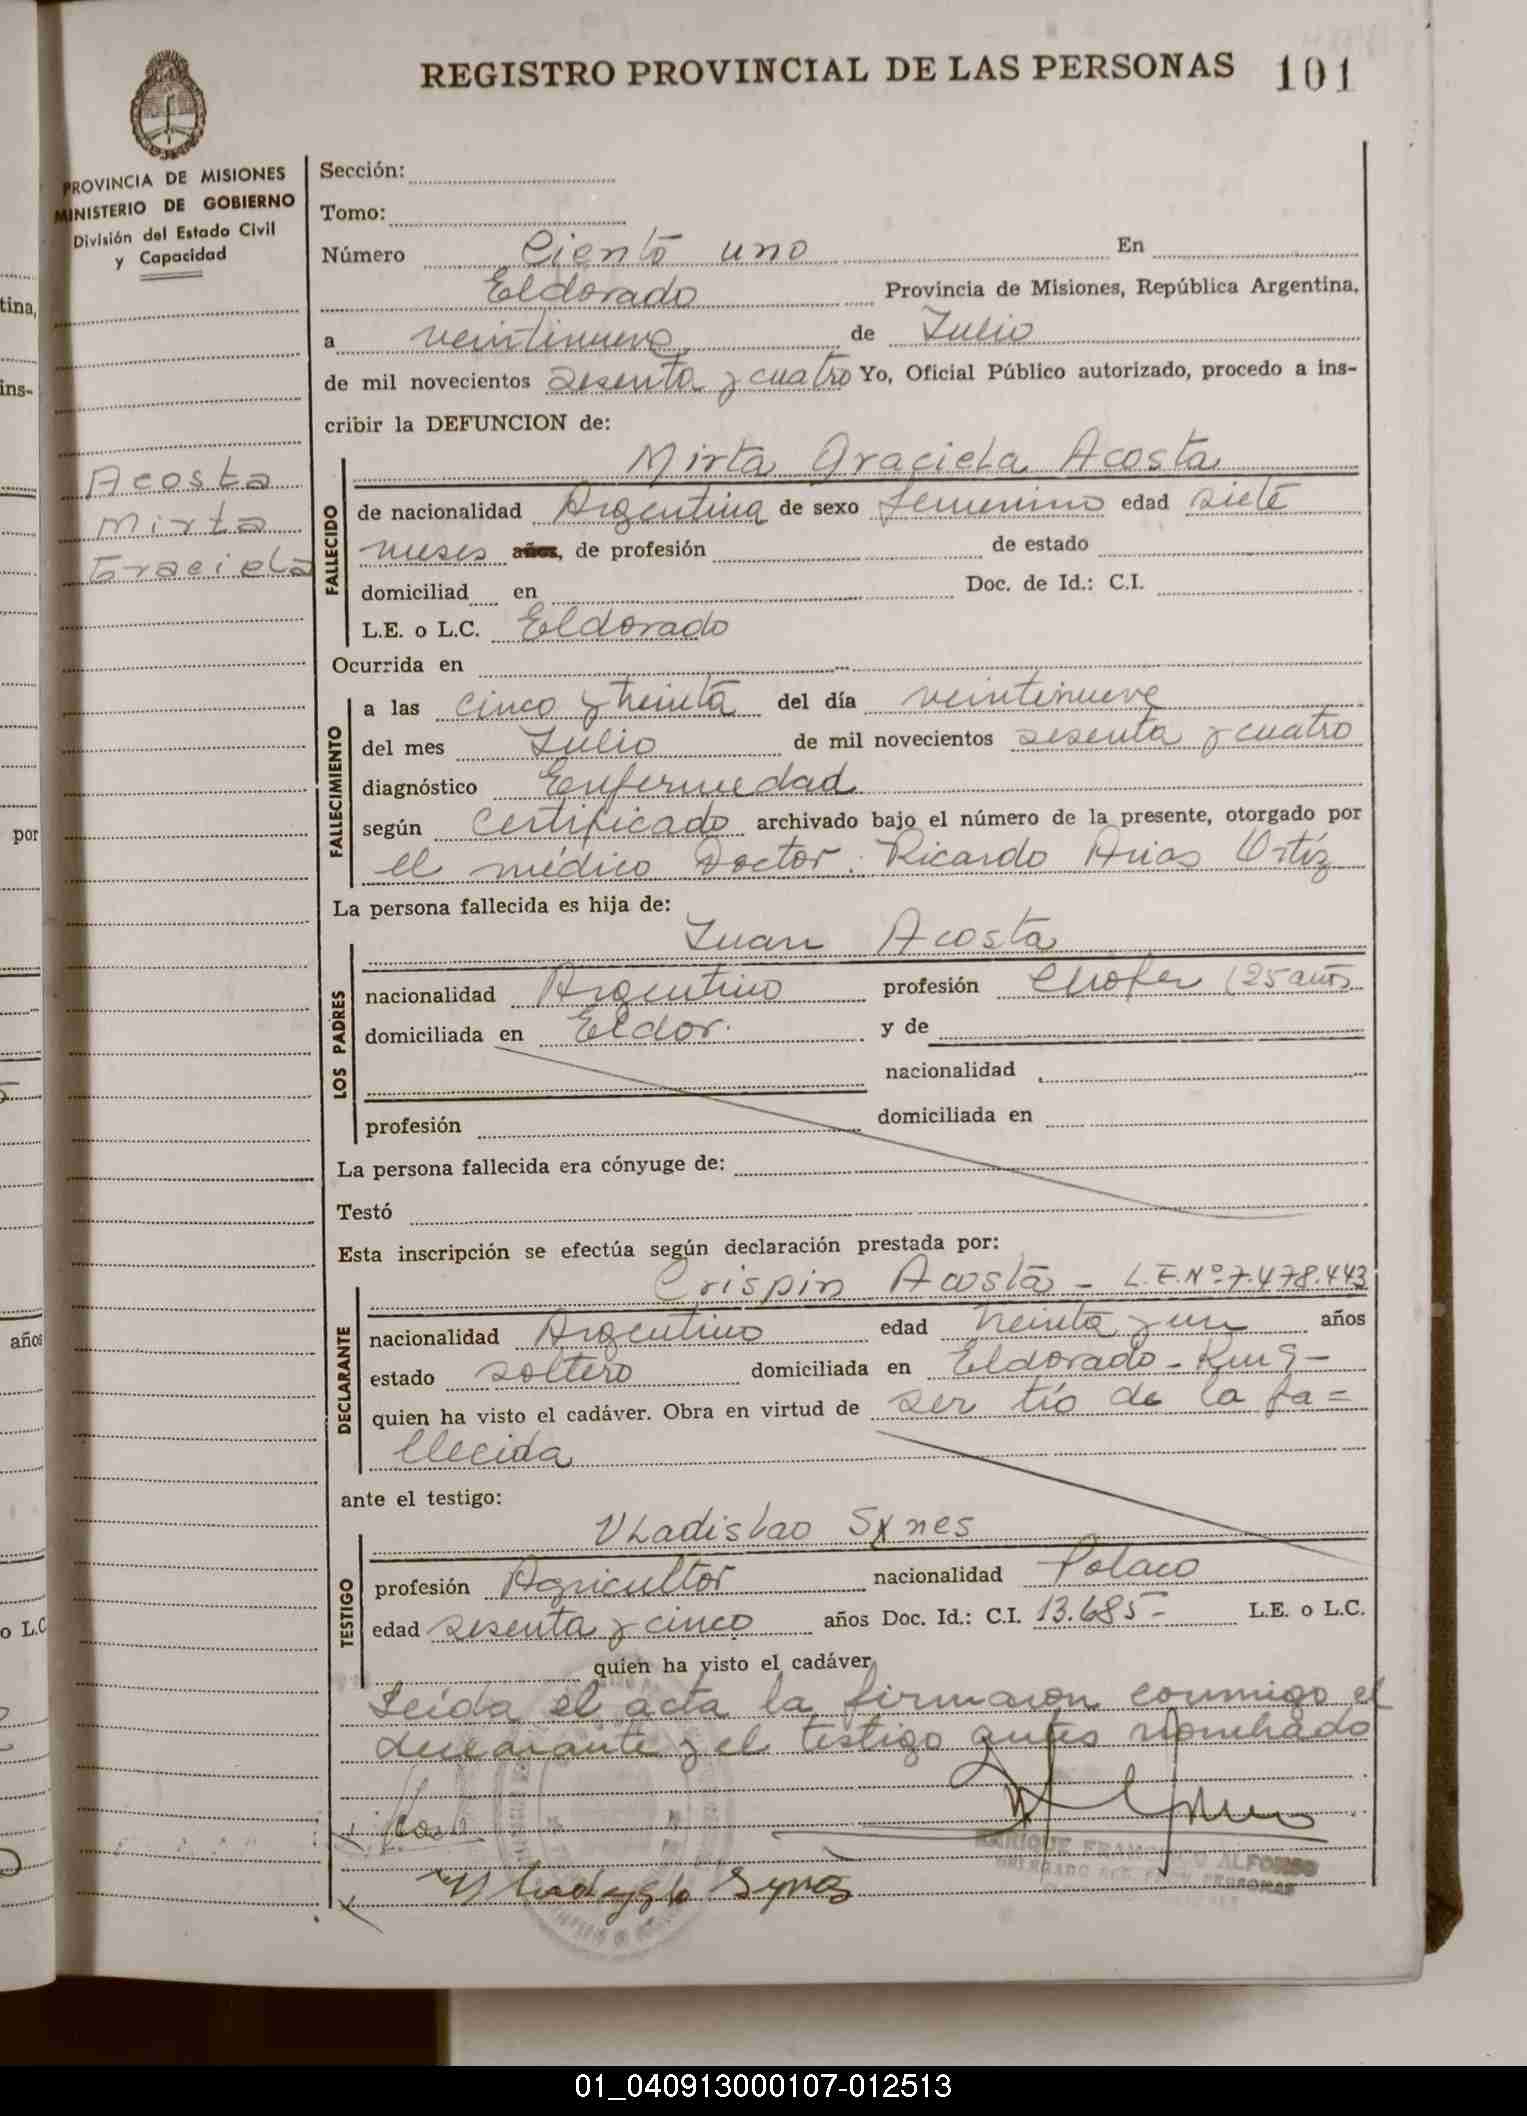 REGISTRO PROVINCIAL DE LAS PERSONAS 101
PROVINCIA DE MISIONES
MINISTERIO DE GOBIERNO
División del Estado Civil
y Capacidad
Acosta
Mirta
Graciela
Sección:
Tomo:
Número Ciento uno En
Eldorado Provincia de Misiones, República Argentina,
a veintinueve de Julio
de mil novecientos sesenta y cuatro Yo, Oficial Público autorizado, procedo a ins-
cribir la DEFUNCION de:
FALLECIDO
Mirta Graciela Acosta
de nacionalidad Argentina de sexo femenino edad siete
meses años, de profesión de estado
domiciliad en Doc. de Id.: C.I.
L.E. o L.C. Eldorado
Ocurrida en
FALLECIMIENTO
a las cinco y treinta del día veintinueve
del mes Julio de mil novecientos sesenta y cuatro
diagnóstico Enfermedad
según certificado archivado bajo el número de la presente, otorgado por
el médico Doctor: Ricardo Arias Ortíz
La persona fallecida es hija de:
LOS PADRES
Juan Acosta
nacionalidad Argentino profesión Chofer (25 años
domiciliada en Eldor. y de
nacionalidad
profesión domiciliada en
La persona fallecida era cónyuge de:
Testó
Esta inscripción se efectúa según declaración prestada por:
DECLARANTE
Crispin Acosta - L.E.Nº 7.478.443
nacionalidad Argentino edad treinta y un años
estado soltero domiciliada en Eldorado -
quien ha visto el cadáver. Obra en virtud de ser tío de la fa=
llecida
ante el testigo:
TESTIGO
Vladislao Synes
profesión Agricultor nacionalidad Polaco
edad sesenta y cinco años Doc. Id.: C.I. 13.685- L.E. o L.C.
quien ha visto el cadáver
Leída el acta la firmaron conmigo el
declarante y el testigo antes nombrado
ENRIQUE FRANCISCO ALFONSO
tina,
ins-
por
años
o L.C
01_040913000107-012513